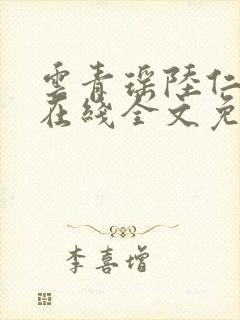 雲青瑶陸仁
在綫全文免
李喜增